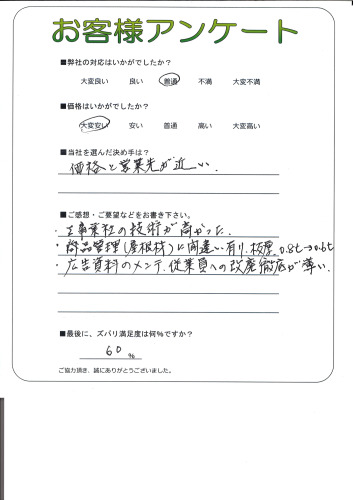 お客様アンケート
■弊社の対応はいかがでしたか？
大変良い 良い 普通 不満 大変不満
■価格はいかがでしたか？
大変安い 安い 普通 高い 大変高い
■当社を選んだ決め手は？
価格と営業先が近い.
■ご感想・ご要望などをお書き下さい。
・工事業社の技術が高かった.
・商品管理（屋根材）に間違い有り.板厚0.8t→0.6t
・広告資料のメンテ.従業員への改廃徹底が薄い.
■最後に、ズバリ満足度は何%ですか？
60 %
ご協力頂き、誠にありがとうございました。